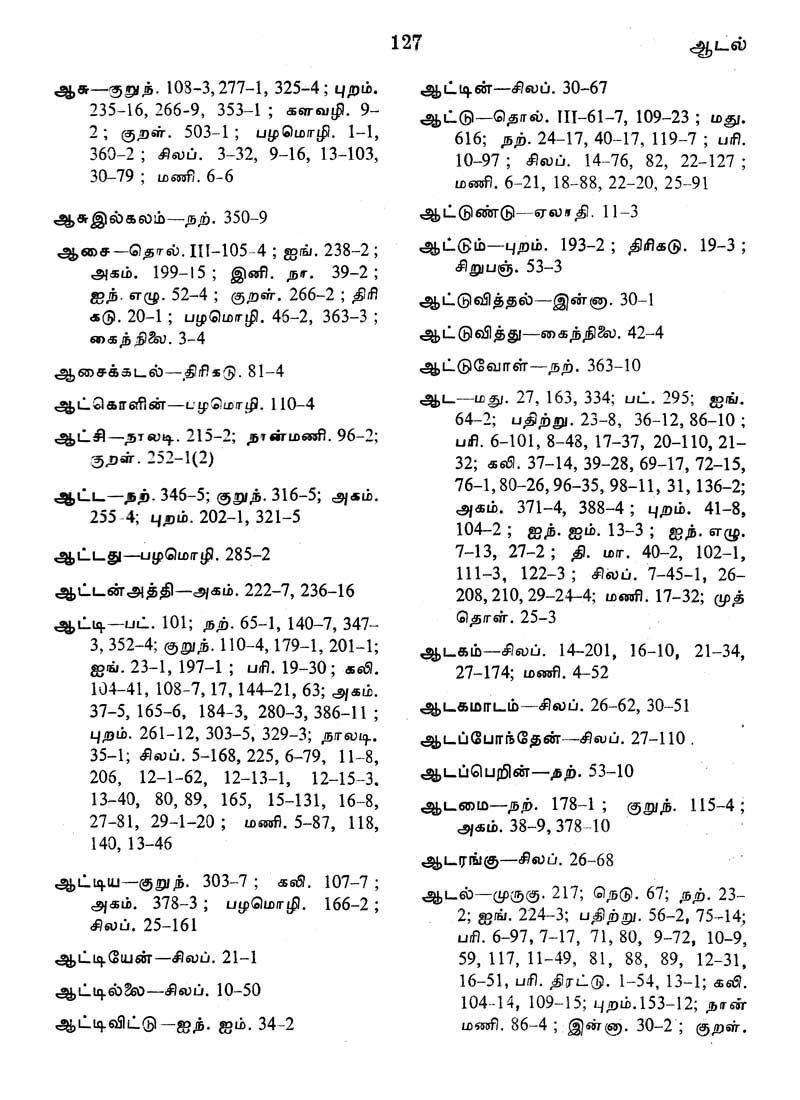 127
ஆடல்
ஆசு—குறுந். 108–3, 277–1, 325–4 ; புறம்.
235–16, 266–9, 353–1 ; களவழி. 9–
2 ; குறள். 503–1 ; பழமொழி. 1–1,
360–2 ; சிலப். 3–32, 9–16, 13–103,
30–79 ; மணி. 6–6
ஆசுஇல்கலம்—நற். 350–9
ஆசை—தொல். III–105–4 ; ஐங். 238–2 ;
அகம். 199–15 ; இனி. நா. 39–2 ;
ஐந். எழு. 52–4 ; குறள். 266–2 ; திரி
கடு. 20–1 ; பழமொழி. 46–2, 363–3 ;
கைந்நிலை. 3–4
ஆசைக்கடல்—திரிகடு. 81–4
ஆட்கொளின்—பழமொழி. 110–4
ஆட்சி—நாலடி. 215–2; நான்மணி. 96–2;
குறள். 252–1(2)
ஆட்ட—நற். 346–5; குறுந். 316–5; அகம்.
255–4; புறம். 202–1, 321–5
ஆட்டது—பழமொழி. 285–2
ஆட்டன்அத்தி—அகம். 222–7, 236–16
ஆட்டி—பட். 101; நற். 65–1, 140–7, 347–
3, 352–4; குறுந். 110–4, 179–1, 201–1;
ஐங். 23–1, 197–1 ; பரி. 19–30 ; கலி.
104–41, 108–7, 17, 144–21, 63; அகம்.
37–5, 165–6, 184–3, 280–3, 386–11 ;
புறம். 261–12, 303–5, 329–3; நாலடி.
35–1; சிலப். 5–168, 225, 6–79, 11–8,
206, 12–1–62, 12–13–1, 12–15–3.
13–40, 80, 89, 165, 15–131, 16–8,
27–81, 29–1–20 ; மணி. 5–87, 118,
140, 13–46
ஆட்டிய—குறுந். 303–7 ; கலி. 107–7 ;
அகம். 378–3 ; பழமொழி. 166–2 ;
சிலப். 25–161
ஆட்டியேன்—சிலப். 21–1
ஆட்டில்லை—சிலப். 10–50
ஆட்டிவிட்டு—ஐந். ஐம். 34–2
ஆட்டின்—சிலப். 30–67
ஆட்டு—தொல். III–61–7, 109–23 ; மது.
616; நற். 24–17, 40–17, 119–7 ; பரி.
10–97 ; சிலப். 14–76, 82, 22–127 ;
மணி. 6–21, 18–88, 22–20, 25–91
ஆட்டுண்டு—ஏலாதி. 11–3
ஆட்டும்—புறம். 193–2 ; திரிகடு. 19–3 ;
சிறுபஞ். 53–3
ஆட்டுவித்தல்—இன்னா. 30–1
ஆட்டுவித்து—கைந்நிலை. 42–4
ஆட்டுவோள்—நற். 363–10
ஆட—மது. 27, 163, 334; பட். 295; ஐங்.
64–2; பதிற்று. 23–8, 36–12, 86–10 ;
பரி. 6–101, 8–48, 17–37, 20–110, 21–
32; கலி. 37–14, 39–28, 69–17, 72–15,
76–1, 80–26, 96–35, 98–11, 31, 136–2;
அகம். 371–4, 388–4 ; புறம். 41–8,
104–2 ; ஐந். ஐம். 13–3 ; ஐந். எழு.
7–13, 27–2 ; தி. மா. 40–2, 102–1,
111–3, 122–3 ; சிலப். 7–45–1, 26–
208, 210, 29–24–4; மணி. 17–32; முத்
தொள். 25–3
ஆடகம்—சிலப். 14–201, 16–10, 21–34,
27–174; மணி. 4–52
ஆடகமாடம்—சிலப். 26–62, 30–51
ஆடப்போந்தேன்—சிலப். 27–110 .
ஆடப்பெறின்—நற். 53–10
ஆடமை—நற். 178–1 ; குறுந். 115–4 ;
அகம். 38–9, 378–10
ஆடரங்கு—சிலப். 26–68
ஆடல்—முருகு. 217; நெடு. 67; நற். 23–
2; ஐங். 224–3; பதிற்று. 56–2, 75–14;
பரி. 6–97, 7–17, 71, 80, 9–72, 10–9,
59, 117, 11–49, 81, 88, 89, 12–31,
16–51, பரி. திரட்டு. 1–54, 13–1; கலி.
104–14, 109–15; புறம். 153–12; நான்
மணி. 86–4 ; இன்னா. 30–2 ; குறள்.